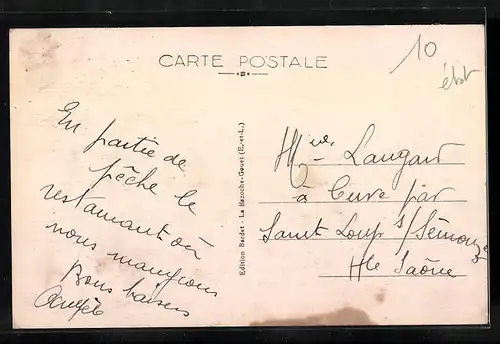 CARTE POSTALE
10
état
En partie de
pêche le
restaurant où
nous mangeons
Bons baisers
Angèle
Edition Bardet - La Bazoche-Gouet (E.-et-L.)
Laugart
à Cuve par
Saint Loup s/ Semouze
Hte Saône